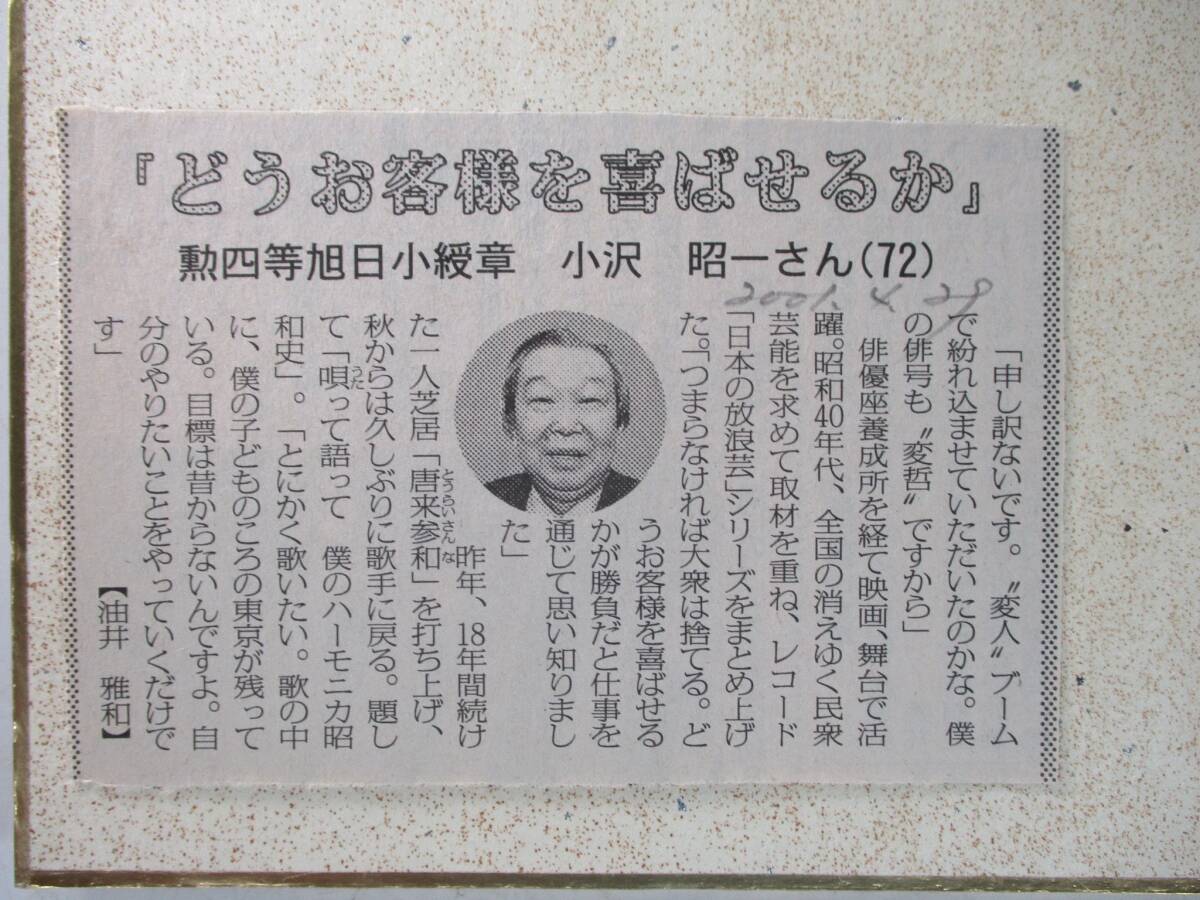 『どうお客様を喜ばせるか』
勲四等旭日小綬章　小沢　昭一さん(72)
2001. 4. 29
「申し訳ないです。〝変人〟ブーム
で紛れ込ませていただいたのかな。僕
の俳号も〝変哲〟ですから」
俳優座養成所を経て映画、舞台で活
躍。昭和40年代、全国の消えゆく民衆
芸能を求めて取材を重ね、レコード
「日本の放浪芸」シリーズをまとめ上げ
た。「つまらなければ大衆は捨てる。ど
うお客様を喜ばせる
かが勝負だと仕事を
通じて思い知りまし
た」
昨年、18年間続け
た一人芝居「唐来参和」を打ち上げ、
とうらいさんな
秋からは久しぶりに歌手に戻る。題し
て「唄って語って　僕のハーモニカ昭
うた
和史」。「とにかく歌いたい。歌の中
に、僕の子どものころの東京が残って
いる。目標は昔からないんですよ。自
分のやりたいことをやっていくだけで
す」
【油井　雅和】